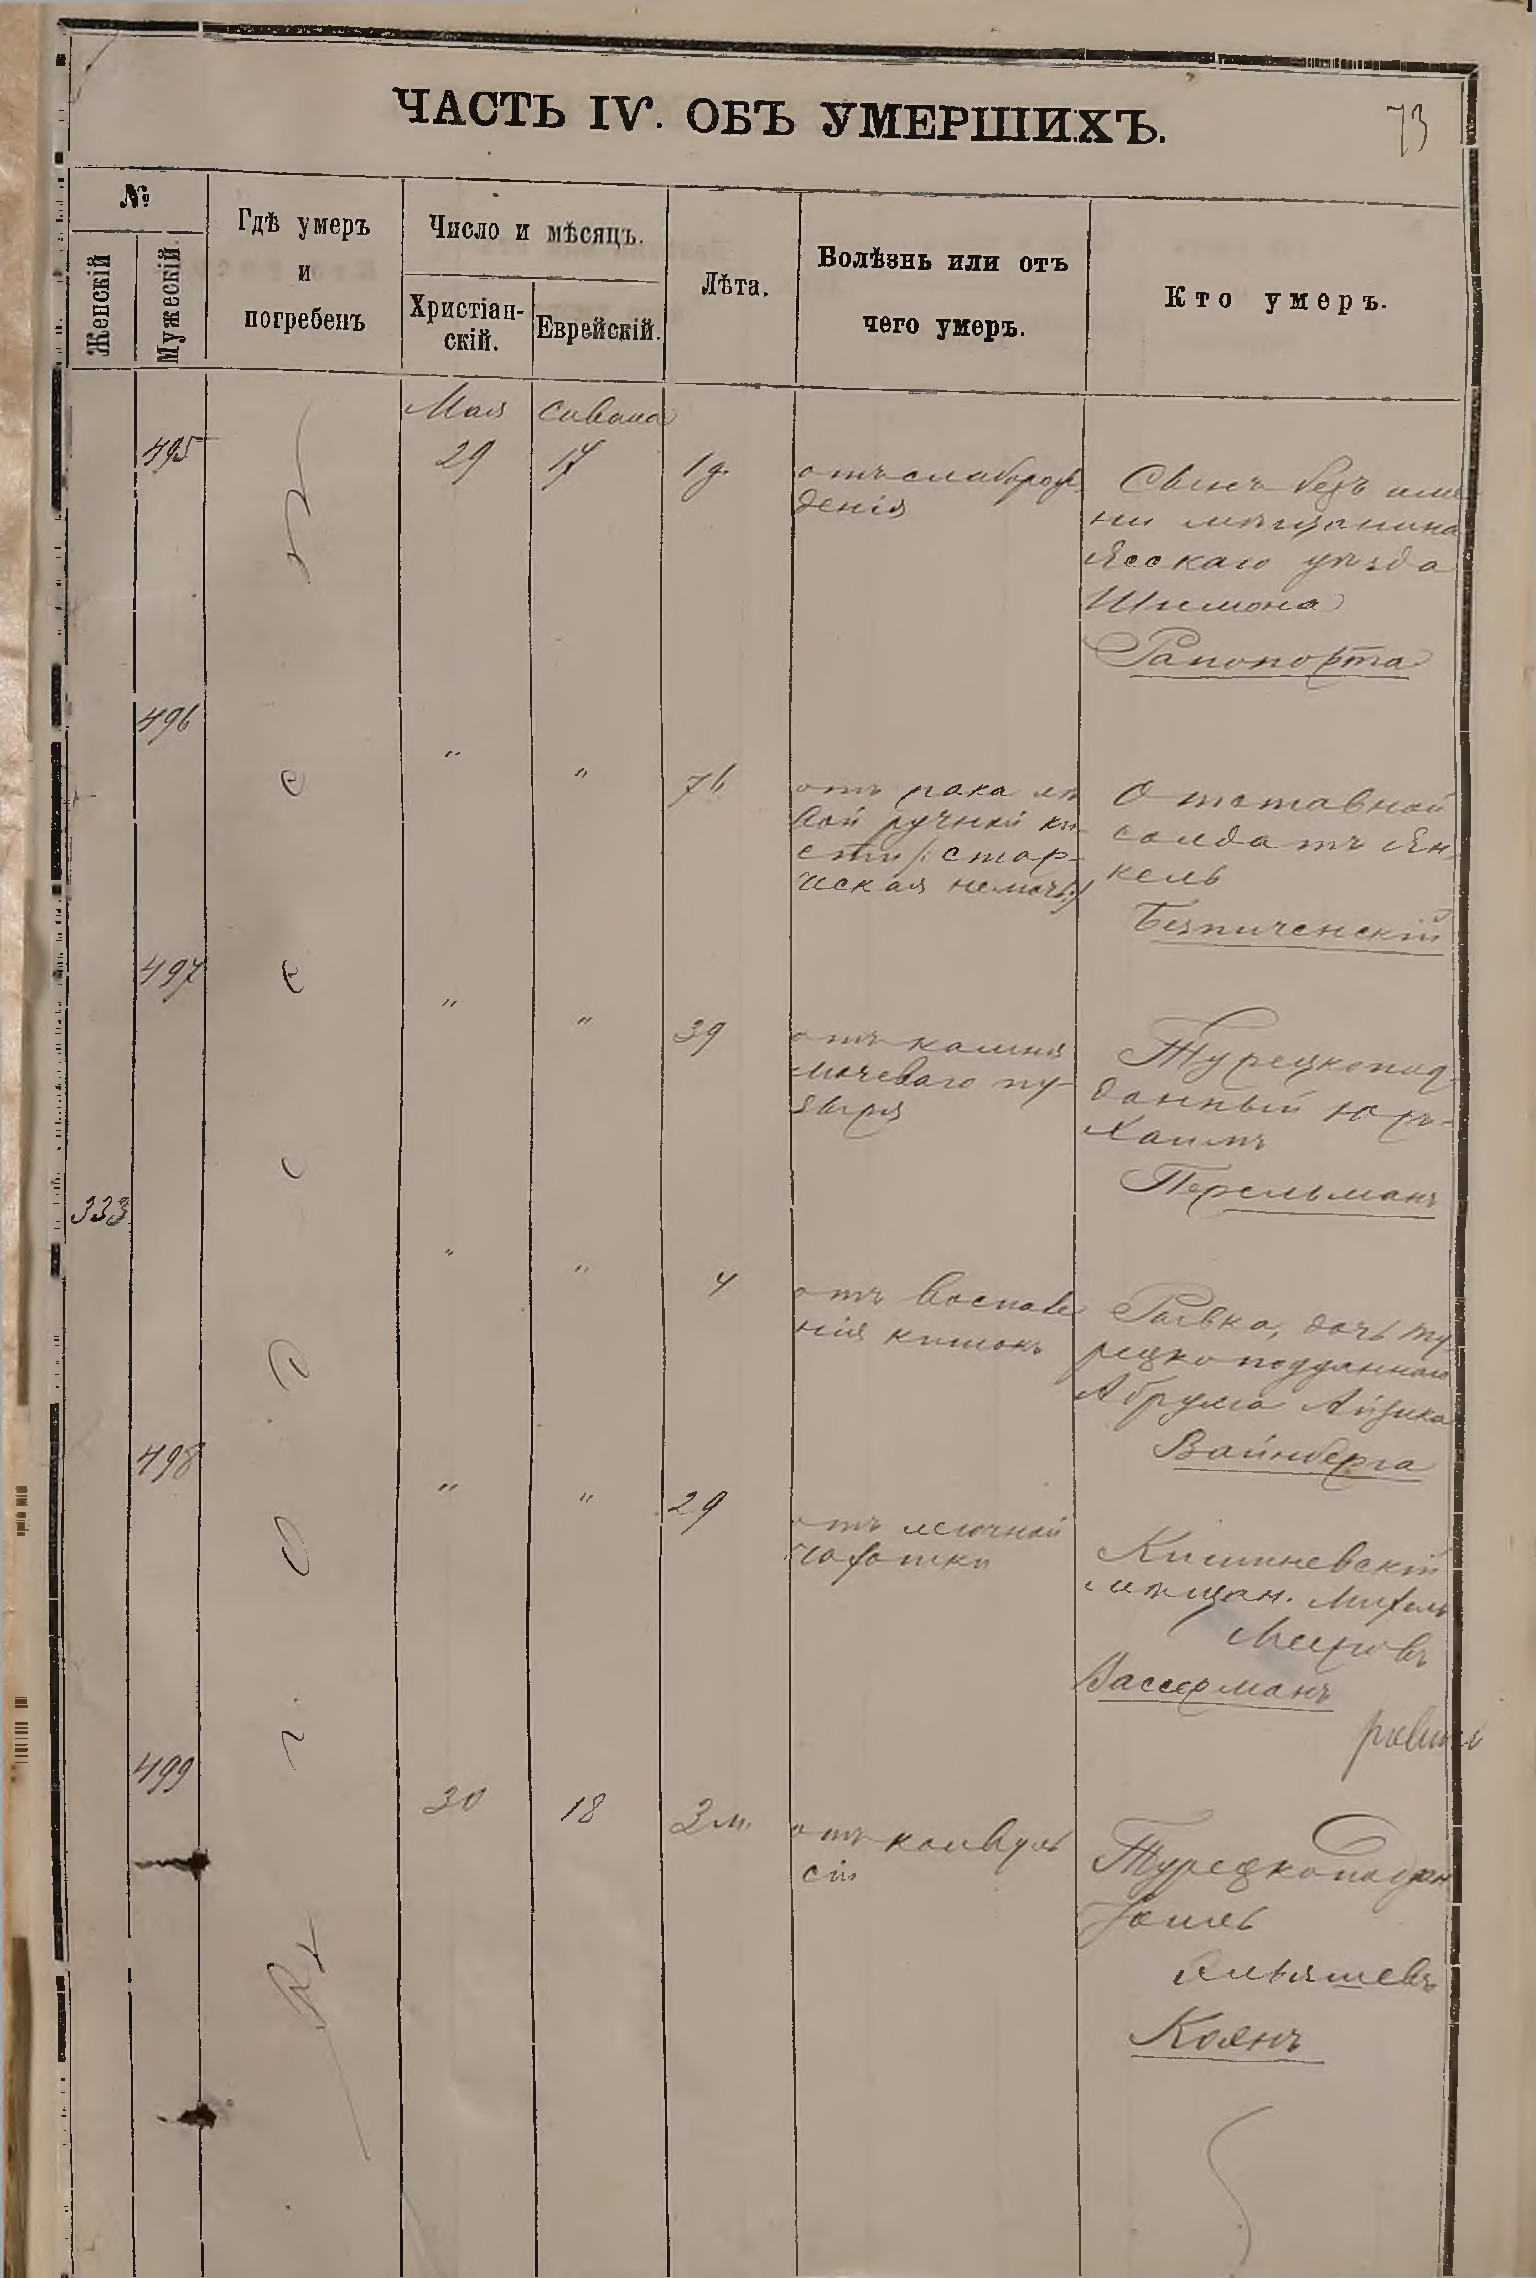 73
ЧАСТЬ IV. ОБЪ УМЕРШИХЪ.
№
Женскій
Мужескій.
Гдѣ умеръ
и
погребенъ
Число и мѣсяцъ.
Христіан-
скій.
Еврейскій.
Лѣта.
Болѣзнь или отъ
чего умеръ.
Кто умеръ.
Мая Сивана
495 29 17 1 д.
отъ слаборож-
денія
Сынъ безъ име-
ни мѣщанина
Ясскаго уѣзда
Шимона
Рапопорта
496 " " 76
отъ рака лѣ
вой ручной ки-
сти /: стар-
ческая немочь :/
Отставной
солдатъ Ян-
кель
497 " " 39
отъ камня
мочеваго пу-
зыря
Турецкопод-
данный
Хаимъ
Перельманъ
333 " " 4
отъ воспале
нія кишокъ
Ривка, дочь ту-
рецкоподданнаго
Абрума Айзика
Вайнберга
498 " " 29
отъ легочной
чахотки
Кишиневскій
мѣщан. Михель
Меировъ
Вассерманъ
499 30 18 3 м.
отъ конвуль
сіи
Турецкоподдан
Хаимъ
Коянъ